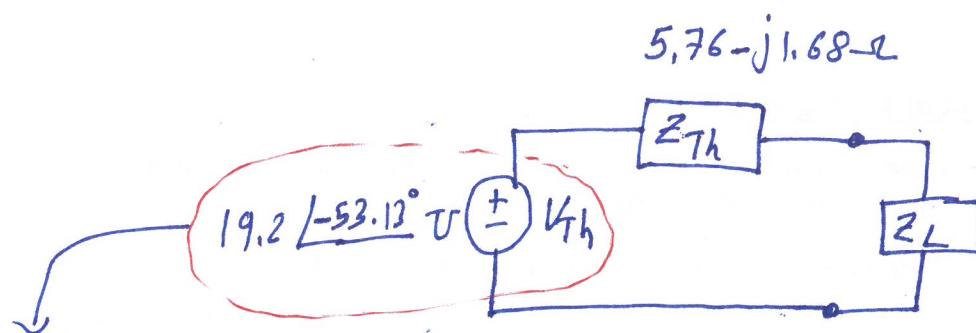 5.76-j1.68Ω
Z_Th
19.2 ∠-53.13° V
+
-
V_Th
Z_L